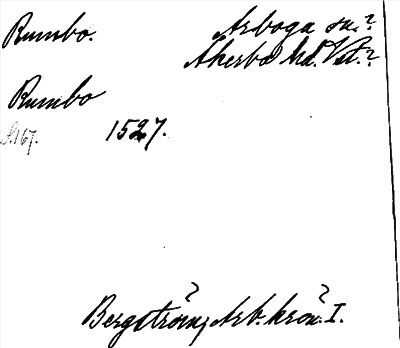 Rumbo. Arboga sn.?
Åkerbo hd. Vstm.?
Rumbo
S.167. 1527.
Bergström, Arb. krön. I.